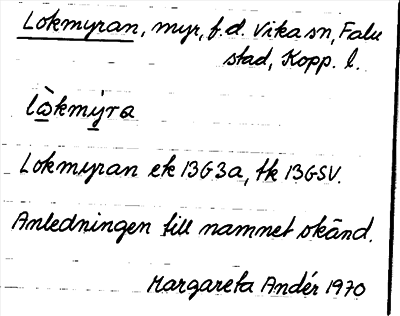 Lokmyran, myr, f.d. Vika sn, Falu
stad, Kopp. l.
lòkmỳra
Lokmyran ek 13G3a, tk 13GSV.
Anledningen till namnet okänd.
Margareta Andér 1970